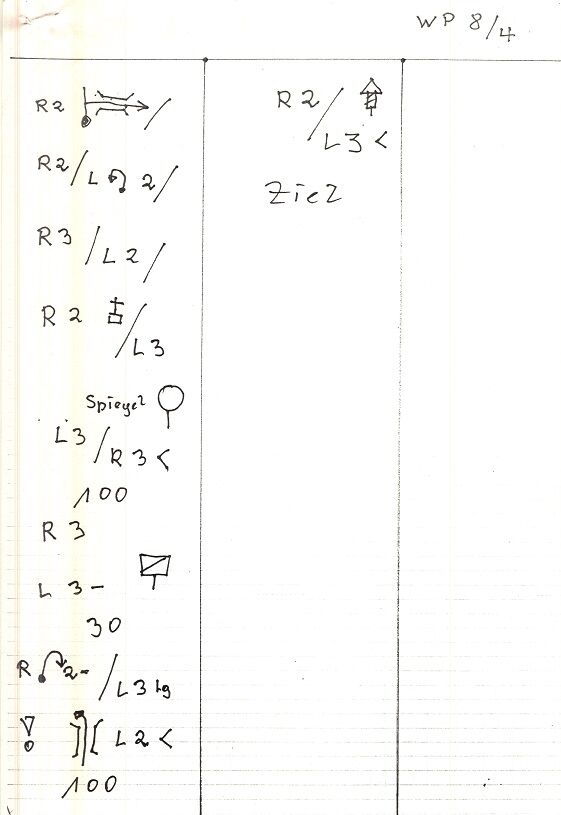 WP 8/4
R2 /
R2 / L 2 /
R3 / L2 /
R2 / L3
Spiegel
L3 / R3 <
100
R3
L 3-
30
R 2- / L3 lg
L2 <
100
R2 /
L3 <
Ziel